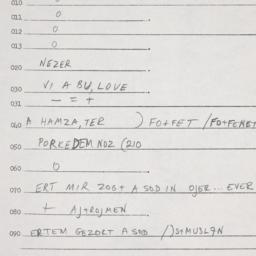 010
011 0
012 0
013 0
020 NEZER
030 VI A BU, LOVE
031 — = +
040 A HAMZA, TER ) FO+FET /FO+FEMET
050 PORKEDEM NOZ (210
060 0
070 ERT MIR ZOG+ A SOD IN OJER... EVER
080 + AJ+ROJMEN
090 ERTEM GEZORT A SOD /)S+MUSLQN